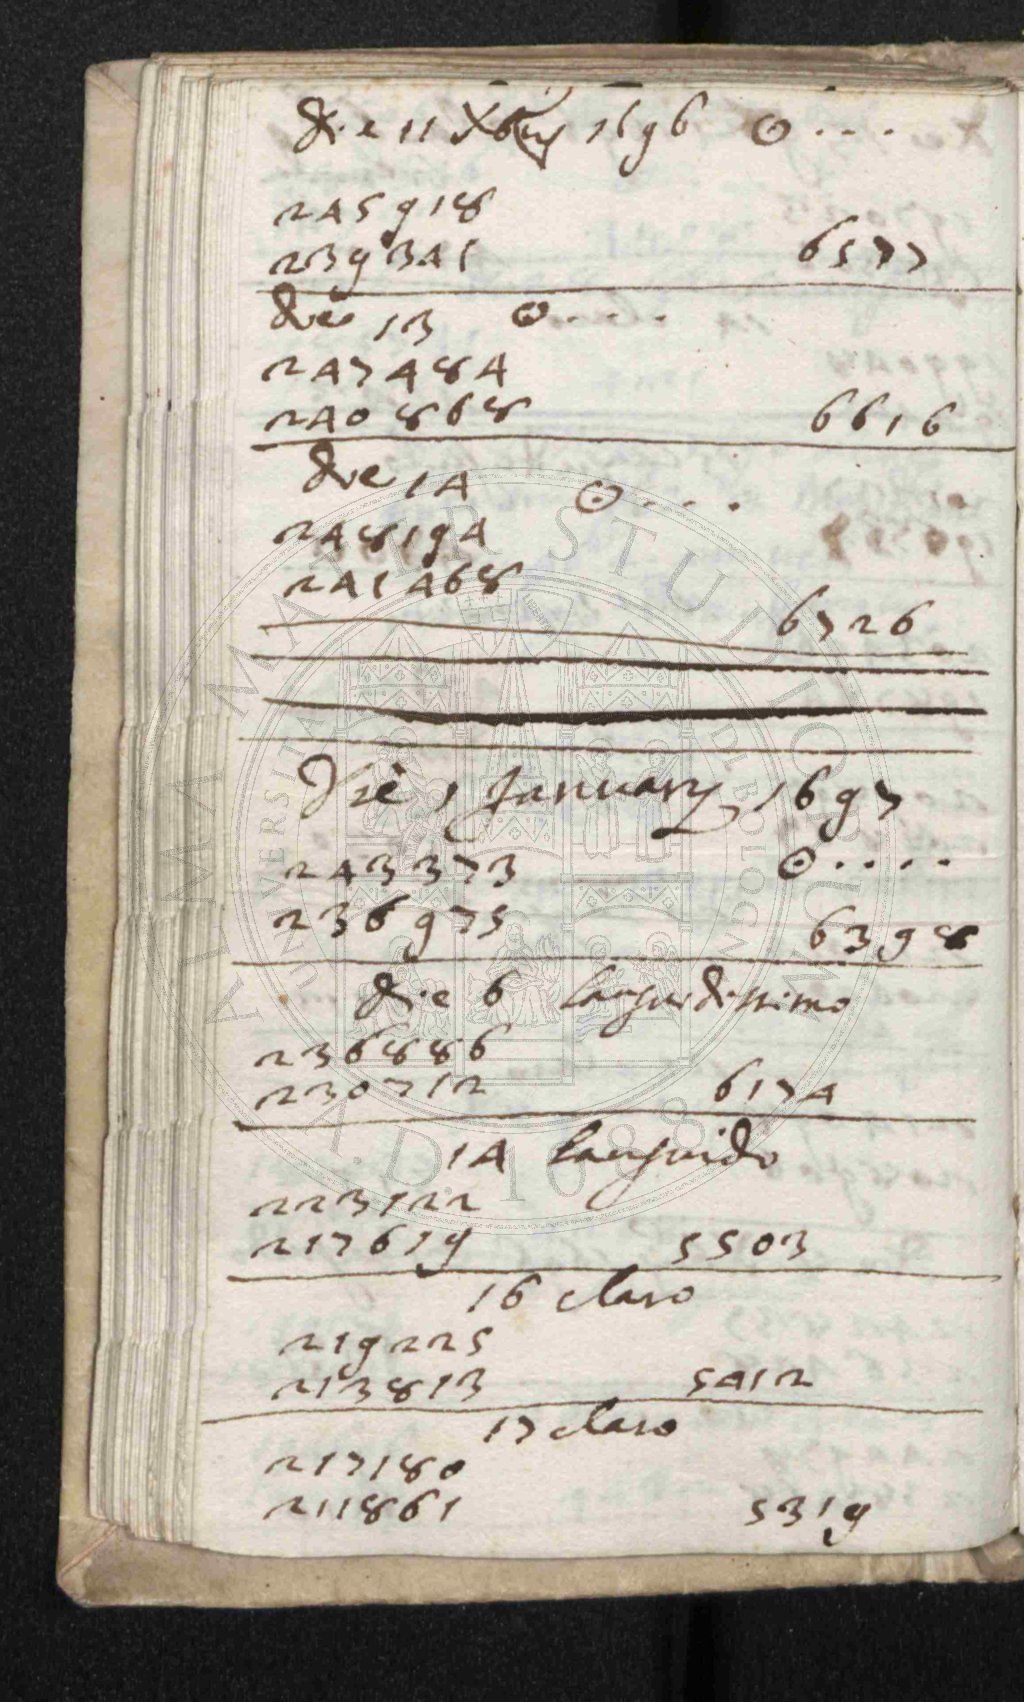 die 11 Xbris 1696 ⊙ . . . .
245918
239341 6577
die 13 ⊙ . . . .
247484
240868 6616
die 14 ⊙ . . . .
248194
241468 6726
Die 1 January 1697
243373 ⊙ . . . .
236975 6398
die 6 languidissimo
236886
230712 6174
14 languido
223122
217619 5503
16 claro
219225
213813 5412
17 claro
217180
211861 5319
ALMA MATER STUDIORUM
UNIVERSITAS
BONON
A.D. 1088
LIBERTAS